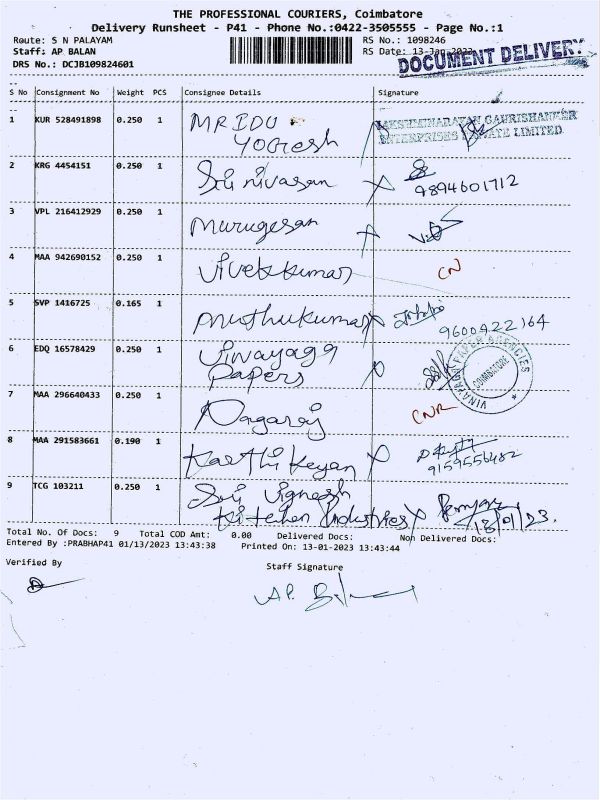 THE PROFESSIONAL COURIERS, Coimbatore
Delivery Runsheet - P41 - Phone No.:0422-3505555 - Page No.:1
Route: S N PALAYAM
RS No.: 1098246
Staff: AP BALAN
RS Date: 13-Jan-2023
DOCUMENT DELIVERY
DRS No.: DCJB109824601
S No Consignment No Weight PCS Consignee Details Signature
1 KUR 528491898 0.250 1 MRIDU
LAKSHMINARAYAN GAURISHANKER
Yogesh
ENTERPRISES PRIVATE LIMITED
2 KRG 4454151 0.250 1 Sri nivasan
9894601712
3 VPL 216412929 0.250 1 Murugesan
4 MAA 942690152 0.250 1 Vivekkumar CN
5 SVP 1416725 0.165 1 Muthukumar
9600922164
6 EDQ 16578429 0.250 1 Vinayaga
Papers
VINAYAGA PAPER AGENCIES
COIMBATORE
7 MAA 296640433 0.250 1 Nagaraj CNR
8 MAA 291583661 0.190 1 Karthi Keyan
9159556482
9 TCG 103211 0.250 1 Sri Vignesh
Kitchen Industries
13/01/23.
Total No. Of Docs: 9 Total COD Amt: 0.00 Delivered Docs: Non Delivered Docs:
Entered By :PRABHAP41 01/13/2023 13:43:38 Printed On: 13-01-2023 13:43:44
Verified By
Staff Signature
A.P.